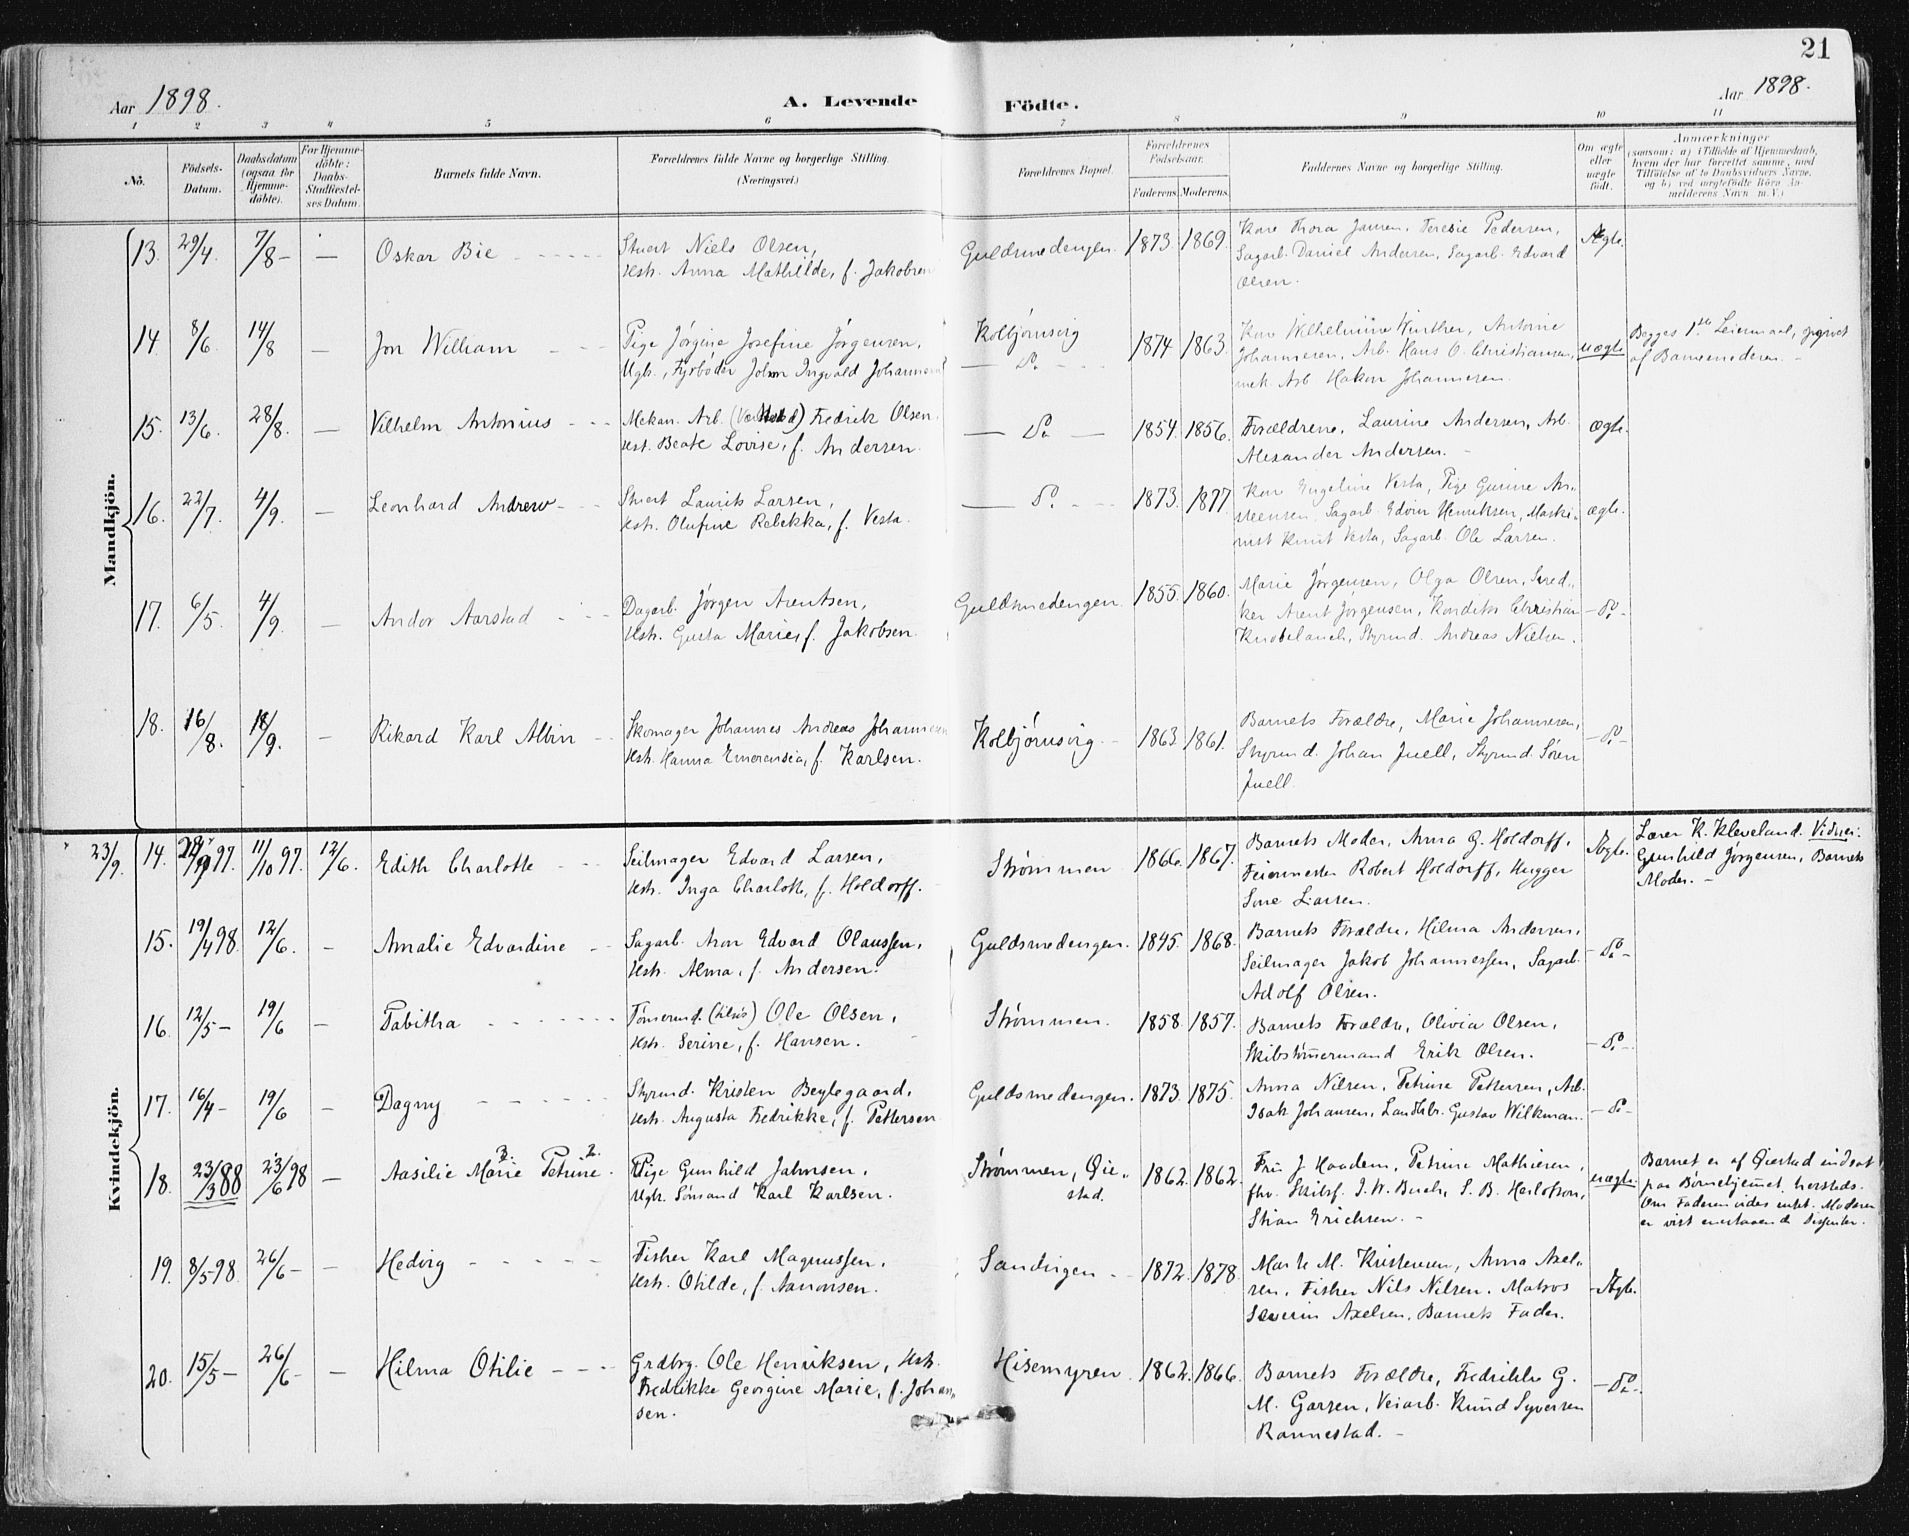 21
Aar 1898.
A. Levende
Födte.
Aar 1898.
1 2 3 4 5 6 7 8 9 10 11
No.
Födsels-
Datum.
Daabsdatum
(ogsaa for
Hjemme-
döbte).
For Hjemme-
döbte:
Daabs-
Stadfæstel-
ses Datum.
Barnets fulde Navn.
Forældrenes fulde Navne og borgerlige Stilling.
(Næringsvei.)
Forældrenes Bopæl.
Forældrenes
Födselsaar.
Faderens. Moderens.
Faddernes Navne og borgerlige Stilling.
Om ægte
eller
uægte
födt.
Anmærkninger
(saasom: a) i Tilfælde af Hjemmedaab,
hvem der har forrettet samme, med
Tilföielse af to Daabsvidners Navne,
og b) ved uægtefödte Börn An-
melderens Navn m. V.)
Mandkjön.
13. 29/4. 7/8 - — Oskar Bie
Stuert Niels Olsen,
Hstr. Anna Mathilde, f. Jakobsen
Guldsmedengen. 1873. 1869.
Kone Thora Jansen, Teresie Pedersen,
Sagarb. Daniel Andersen, Sagarb. Edvard
Olsen.
Ægte.
14. 8/6. 14/8 — Jon William
Pige Jørgine Josefine Jørgensen,
Ugb., Fyrbøder John Ingvald Johannesen
Kolbjørnsvig
— Do —
1874. 1863.
Kone Wilhelmine Winther, Antonie
Johannesen, Arb. Hans O. Christiansen,
mek. Arb Hakon Johannesen.
uægte
Begges 1ste Leiermaal, opgivet
af Barnemoderen. -
15. 13/6. 28/8. — Vilhelm Antonius
Mekan. Arb. Fredrik Olsen
Hst. Beate Lovise, f. Andersen.
— Do — 1854. 1856.
Forældrene, Laurine Andersen, Arb.
Alexander Andersen.
ægte.
16. 22/7. 4/9. — Leonhard Andrew
Stuert Laurits Larsen,
Hstr. Olufine Rebekka, f. Vesta.
— Do — 1873. 1877
Kone Engeline Vesta, Pige Gurine An-
steensen, Sagarb. Edvin Henriksen, Maski-
nist Knut Vesta, Sagarb. Ole Larsen.
ægte.
17. 6/5. 4/9. — Andor Aarstad
Dagarb. Jørgen Arentsen,
Hstr. Gusta Marie, f. Jakobsen.
Guldsmedengen. 1855. 1860.
Marie Jørgensen, Olga Olsen, Sned-
ker Arent Jørgensen, Konditor Christian
Knobelauch, Styrmd. Andreas Nielsen.
- Do -
18. 16/8. 18/9. — Rikard Karl Albin
Skomager Johannes Andreas Johannesen
Hstr. Hanna Emerensia, f. Karlsen.
Kolbjørnsvig 1863. 1861.
Barnets Forældre, Marie Johannesen,
Styrmd. Johan Juell, Styrmd. Søren
Juell.
- Do -
Kvindekjön.
23/9. 14. 97. 11/10 97. 12/6. Edith Charlotte
Seilmager Edvard Larsen,
Hstr. Inga Charlotte, f. Holdorff.
Strømmen 1866. 1867.
Barnets Moder, Anna G. Holdorff,
Feiermester Robert Holdorff, Hugger
Larsen.
Ægte.
Lærer K. Kleveland. Vidner:
Gunhild Jørgensen, Barnets
Moder. -
15. 19/4 98. 12/6. — Amalie Edvardine
Sagarb. Aron Edvard Olaussen,
Hstr. Alma, f. Andersen.
Guldsmedengen. 1845. 1868.
Barnets Forældre, Hilma Andersen,
Seilmager Jakob Johannessen, Sagarb.
Adolf Olsen.
- Do -
16. 12/5 - 19/6 — Tabitha
Tømermd. Ole Olsen,
Hstr. Serine, f. Hansen.
Strømmen. 1858. 1857.
Barnets Forældre, Olivia Olsen,
Skibstømermand Erik Olsen.
- Do -
17. 16/4 - 19/6 — Dagny
Styrmd. Kristen Beylegaard,
Hstr. Augusta Fredrikke, f. Pettersen
Guldsmedengen. 1873. 1875.
Anna Nilsen, Petrine Pettersen, Arb.
Isak Johansen, Landhdr. Gustav Wilkman.
- Do -
18. 23/3 88 23/6 98 — Aasilie Marie Petrine.
Pige Gunhild Jahnsen,
Ugk. Sømand Karl Karlsen.
Strømmen, Øie-
stad.
1862. 1862.
Fru J. Haadem, Petrine Mathisen,
fhv. Skibsf. J. W. Buch, S. B. Herlofson,
Stian Erichsen. -
uægte.
Barnet er af Øiestad indsat
paa Børnehjemet hersteds.
Om Faderen vides intet. Moderen
er vist Dissenter.
19. 8/5 98. 26/6 - — Hedvig
Fisker Karl Magnussen,
Hstr. Otilde, f. Aanonsen.
Sandvigen 1872. 1878.
M. Kristensen, Anna Axel-
sen, Fisker Nils Nilsen, Matros
Severin Axelsen, Barnets Fader.
Ægte.
20. 15/5 - 26/6 - — Hilma Otilie
Grdbrg. Ole Henriksen, Hstr.
Fredrikke Georgine Marie, f. Johan-
sen.
Hisemyren 1862. 1866.
Barnets Forældre, Fredrikke G.
M. Garsen, Veiarb. Knud Syversen
Rannestad. -
- Do -